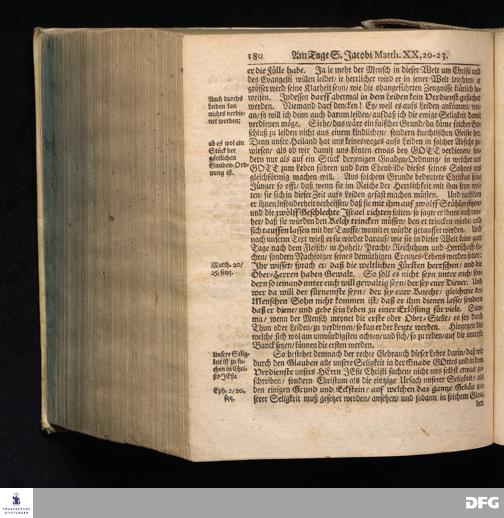 180 Am Tage S. Jacobi Matth. XX, 20-23.
er die Fülle habe. Ja ie mehr der Mensch in dieser Welt um Christi und
des Evangelii willen leidet/ ie herrlicher wird er in jener Welt leuchten/ ie
grösser wird seine Klarheit seyn/ wie die obangeführten Zeugnisse klärlich be-
weisen. Indessen darff abermal in dem Leiden kein Verdienst gesuchet
werden. Niemand darf dencken! Ey/ weil es aufs Leiden ankommt/
an/ so will ich denn auch darum leiden/ auf daß ich die ewige Seligkeit damit
verdienen möge. Siehe/ das wäre ein falscher Grund/ da käme solcher Ent-
schluß zu leiden nicht aus einem kindlichen/ sondern knechtischen Geiste her.
Denn unser Heiland hat uns keinesweges aufs Leiden in solcher Absicht ge-
wiesen/ als ob wir damit uns könten etwas bey GOTT verdienen/ son-
dern nur als auf ein Stück derjenigen Gnaden-Ordnung/ in welcher uns
GOTT zum Leben führen und dem Ebenbilde dieses seines Sohnes uns
gleichförmig machen will. Aus solchem Grunde bedeutete Christus seine
Jünger so offt/ daß wenn sie im Reiche der Herrlichkeit mit ihm seyn wol-
ten/ sie sich in dieser Zeit aufs Leiden gefast machen müsten. Und nachdem
er ihnen insonderheit verheissen/ daß sie mit ihm auf zwölff Stühlen sitzen/
und die zwölff Geschlechte Israel richten solten/ so sagte er ihnen auch vor-
her/ daß sie würden den Kelch trincken müssen/ den er trincken würde/ und
sich tauffen lassen mit der Tauffe/ womit er würde getauffet werden. Und
nach unserm Text wieß er sie wieder darauf/ wie sie in dieser Welt keine gute
Tage nach dem Fleisch/ in Hoheit/ Pracht/ Reichthum und Herrschafft su-
chen/ sondern Nachfolger seines demüthigen Creutzes-Lebens werden solten:
Ihr wisset/ sprach er/ daß die weltlichen Fürsten herrschen/ und die
Ober-Herren haben Gewalt. So soll es nicht seyn unter euch/ son-
dern so iemand unter euch will gewaltig seyn/ der sey euer Diener. Und
wer da will der fürnemste seyn/ der sey euer Knecht: gleichwie des
Menschen Sohn nicht kommen ist/ daß er ihm dienen lasse/ sondern
daß er diene/ und gebe sein Leben zu einer Erlösung für viele. Sum-
ma/ wenn der Mensch meynet die erste oder Ober-Stelle/ es sey durch
Thun oder Leiden/ zu verdienen/ so kan er der Letzte werden. Hingegen die
welche sich wol am unwürdigsten achten/ und sich/ so zu reden/ auf die unterste
Banck setzen/ können die ersten werden.
So bestehet demnach der rechte Gebrauch dieser Lehre darin/ daß wir
durch den Glauben alle unsere Seligkeit in der Gnade GOttes und in dem
Verdienste unsers HErrn JEsu Christi suchen/ nicht uns selbst etwas zu-
schreiben/ sondern Christum als die eintzige Ursach unserer Seligkeit/ als
den einigen Grund und Eckstein/ auf welchen das gantze Gebäu un-
serer Seligkeit muß gesetzet werden/ ansehen/ und sodann in solchem Glau-
ben
Auch durchs
Leiden kan
nichts verdie-
net werden;
ob es wol ein
Stück der
göttlichen
Gnaden-Ord-
nung ist.
Matth. 20/
25. seqq.
Unsere Selig-
keit ist zu su-
chen in Chri-
sto JEsu
Eph. 2/20.
sqq.
FRANCKESCHE
STIFTUNGEN
DFG